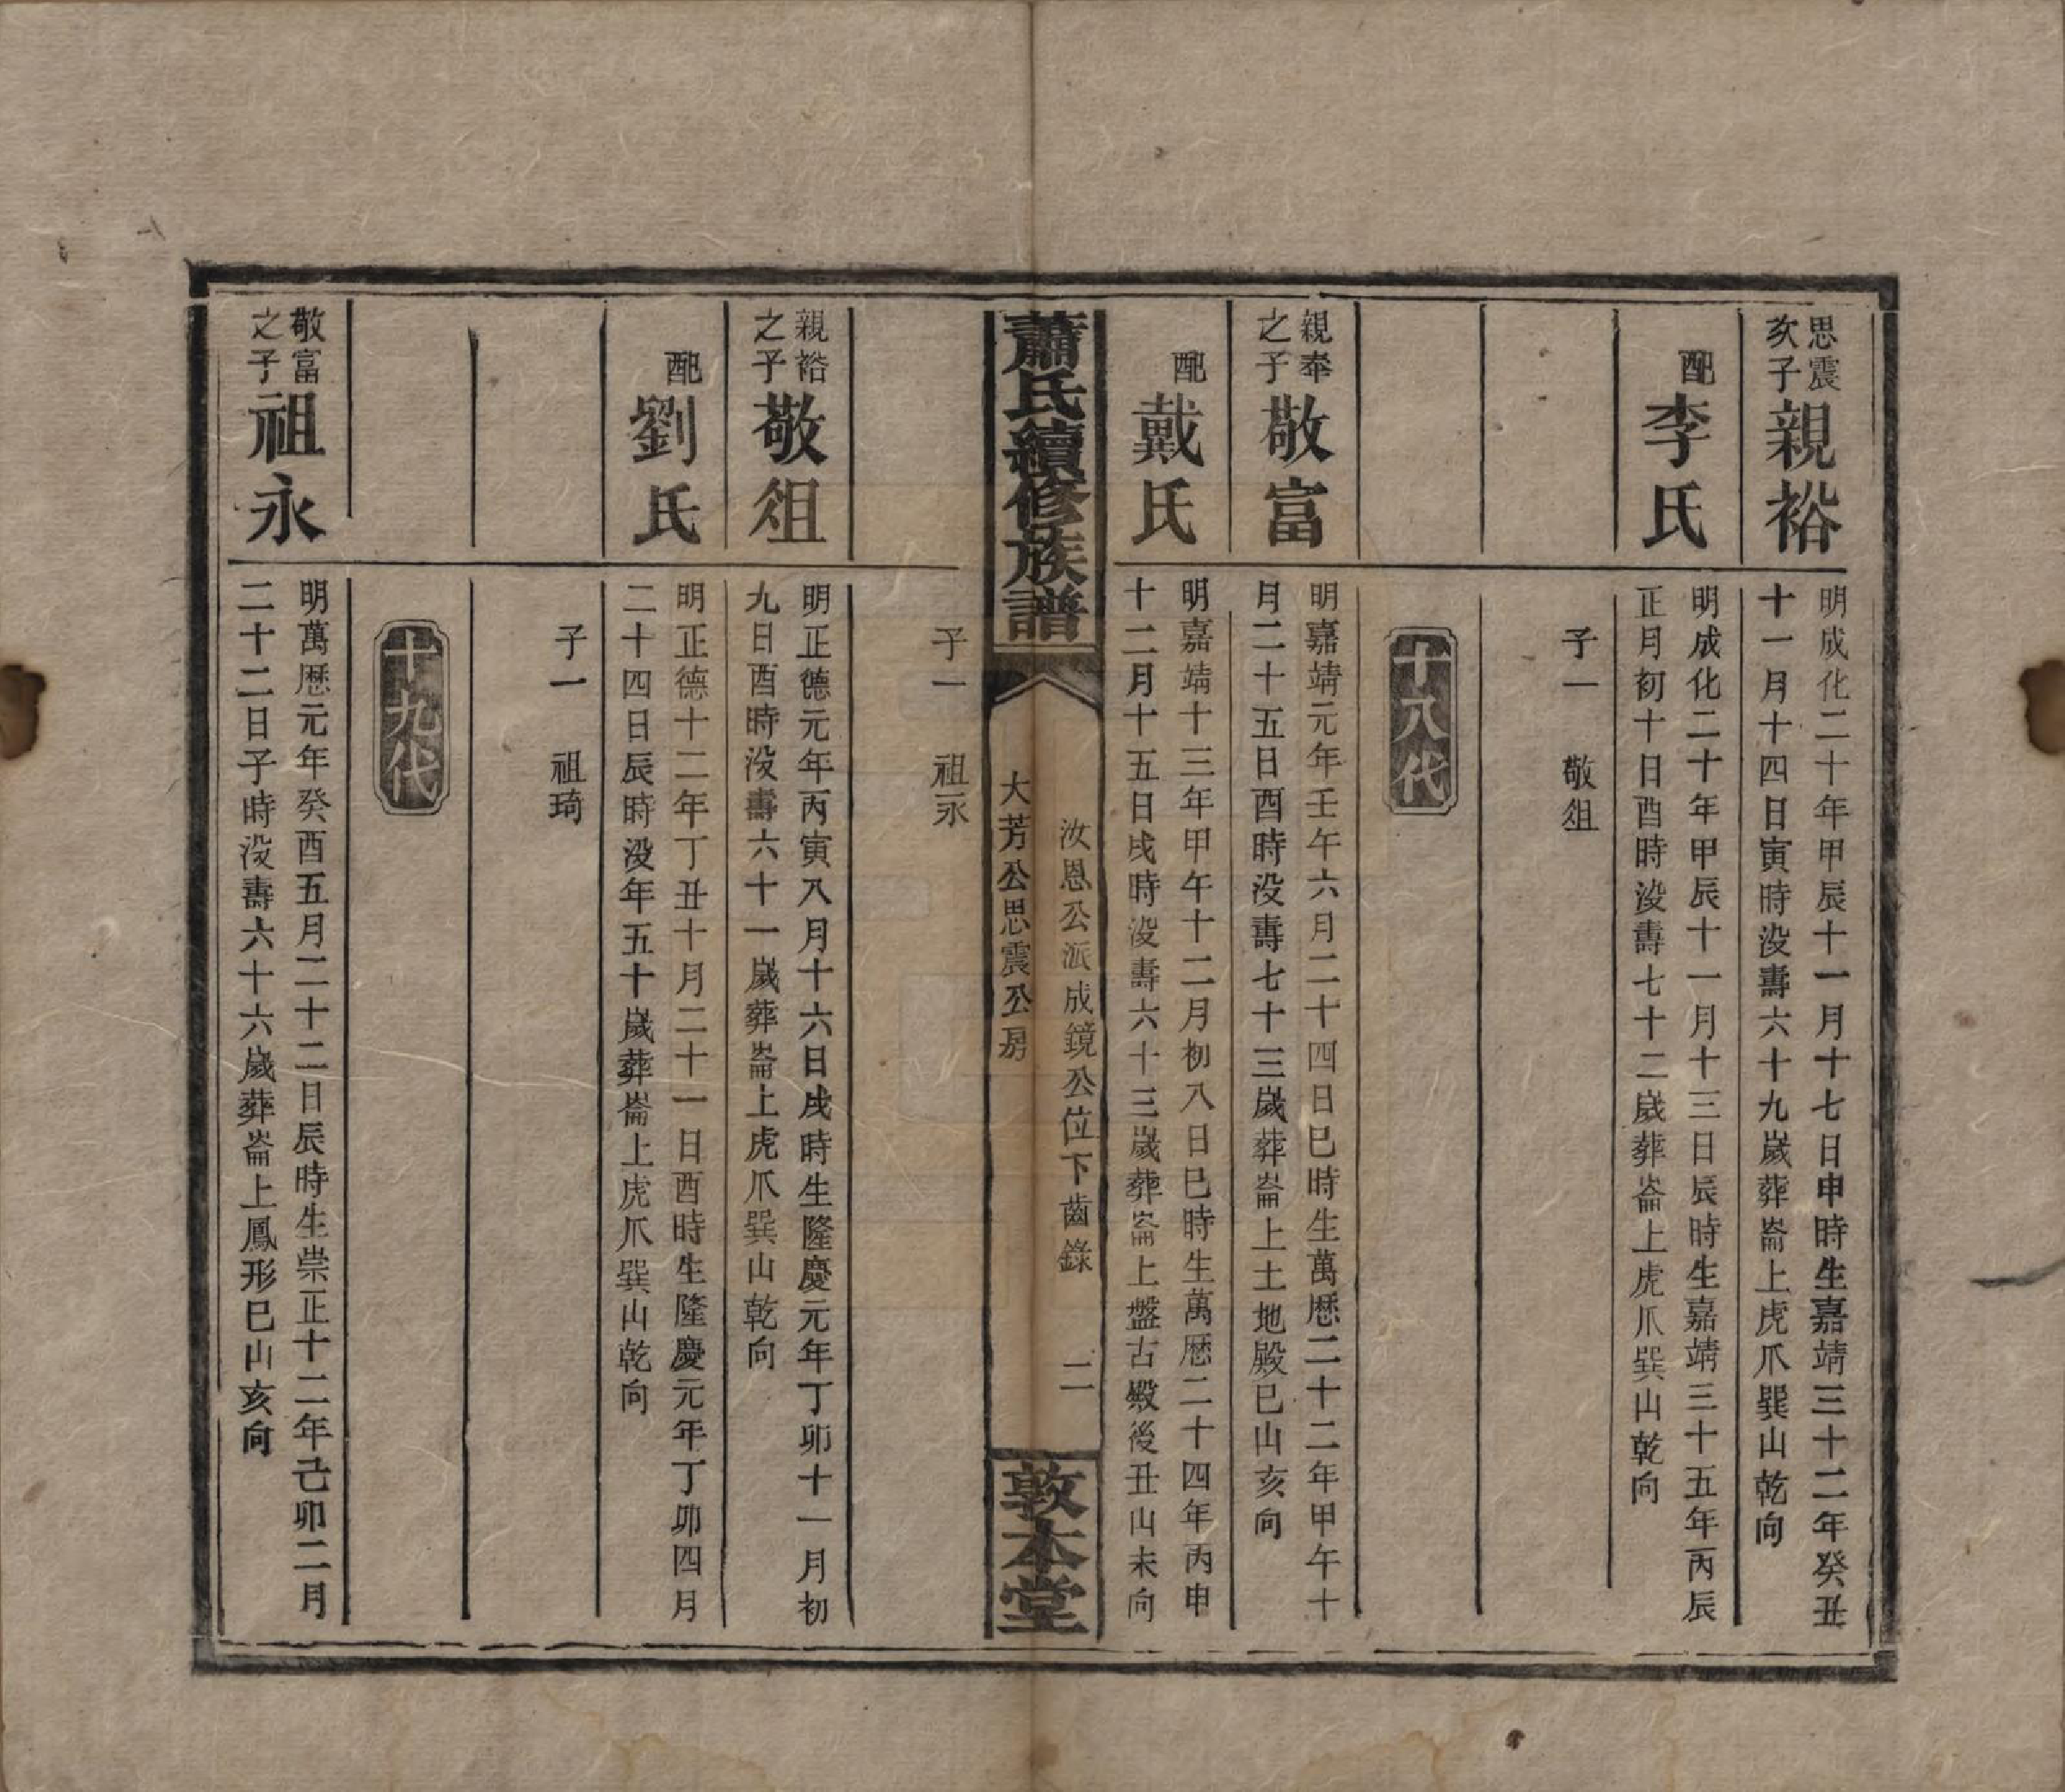 思震
亥子
親裕
明成化二十年甲辰十一月十七日申時生嘉靖三十二年癸丑
十一月十四日寅時没壽六十九歲葬崙上虎爪巽山乾向
配
李氏
明成化二十年甲辰十一月十三日辰時生嘉靖三十五年丙辰
正月初十日酉時没壽七十二歲葬崙上虎爪巽山乾向
子一　敬俎
十八代
親奉
之子
敬富
明嘉靖元年壬午六月二十四日巳時生萬歷二十二年甲午十
月二十五日酉時没壽七十三歲葬崙上土地殿巳山亥向
配
戴氏
明嘉靖十三年甲午十二月初八日巳時生萬歷二十四年丙申
十二月十五日戌時没壽六十三歲葬崙上盤古殿後丑山未向
蕭氏續修族譜
汝恩公派成鏡公位下齒錄　二
大芳公思震公房
敦本堂
子一　祖永
親裕
之子
敬俎
明正德元年丙寅八月十六日戌時生隆慶元年丁卯十一月初
九日酉時没壽六十一歲葬崙上虎爪巽山乾向
配
劉氏
明正德十二年丁丑十月二十一日酉時生隆慶元年丁卯四月
二十四日辰時没年五十歲葬崙上虎爪巽山乾向
子一　祖琦
十九代
敬富
之子
祖永
明萬歷元年癸酉五月二十二日辰時生崇正十二年己卯二月
二十二日子時没壽六十六歲葬崙上鳳形巳山亥向